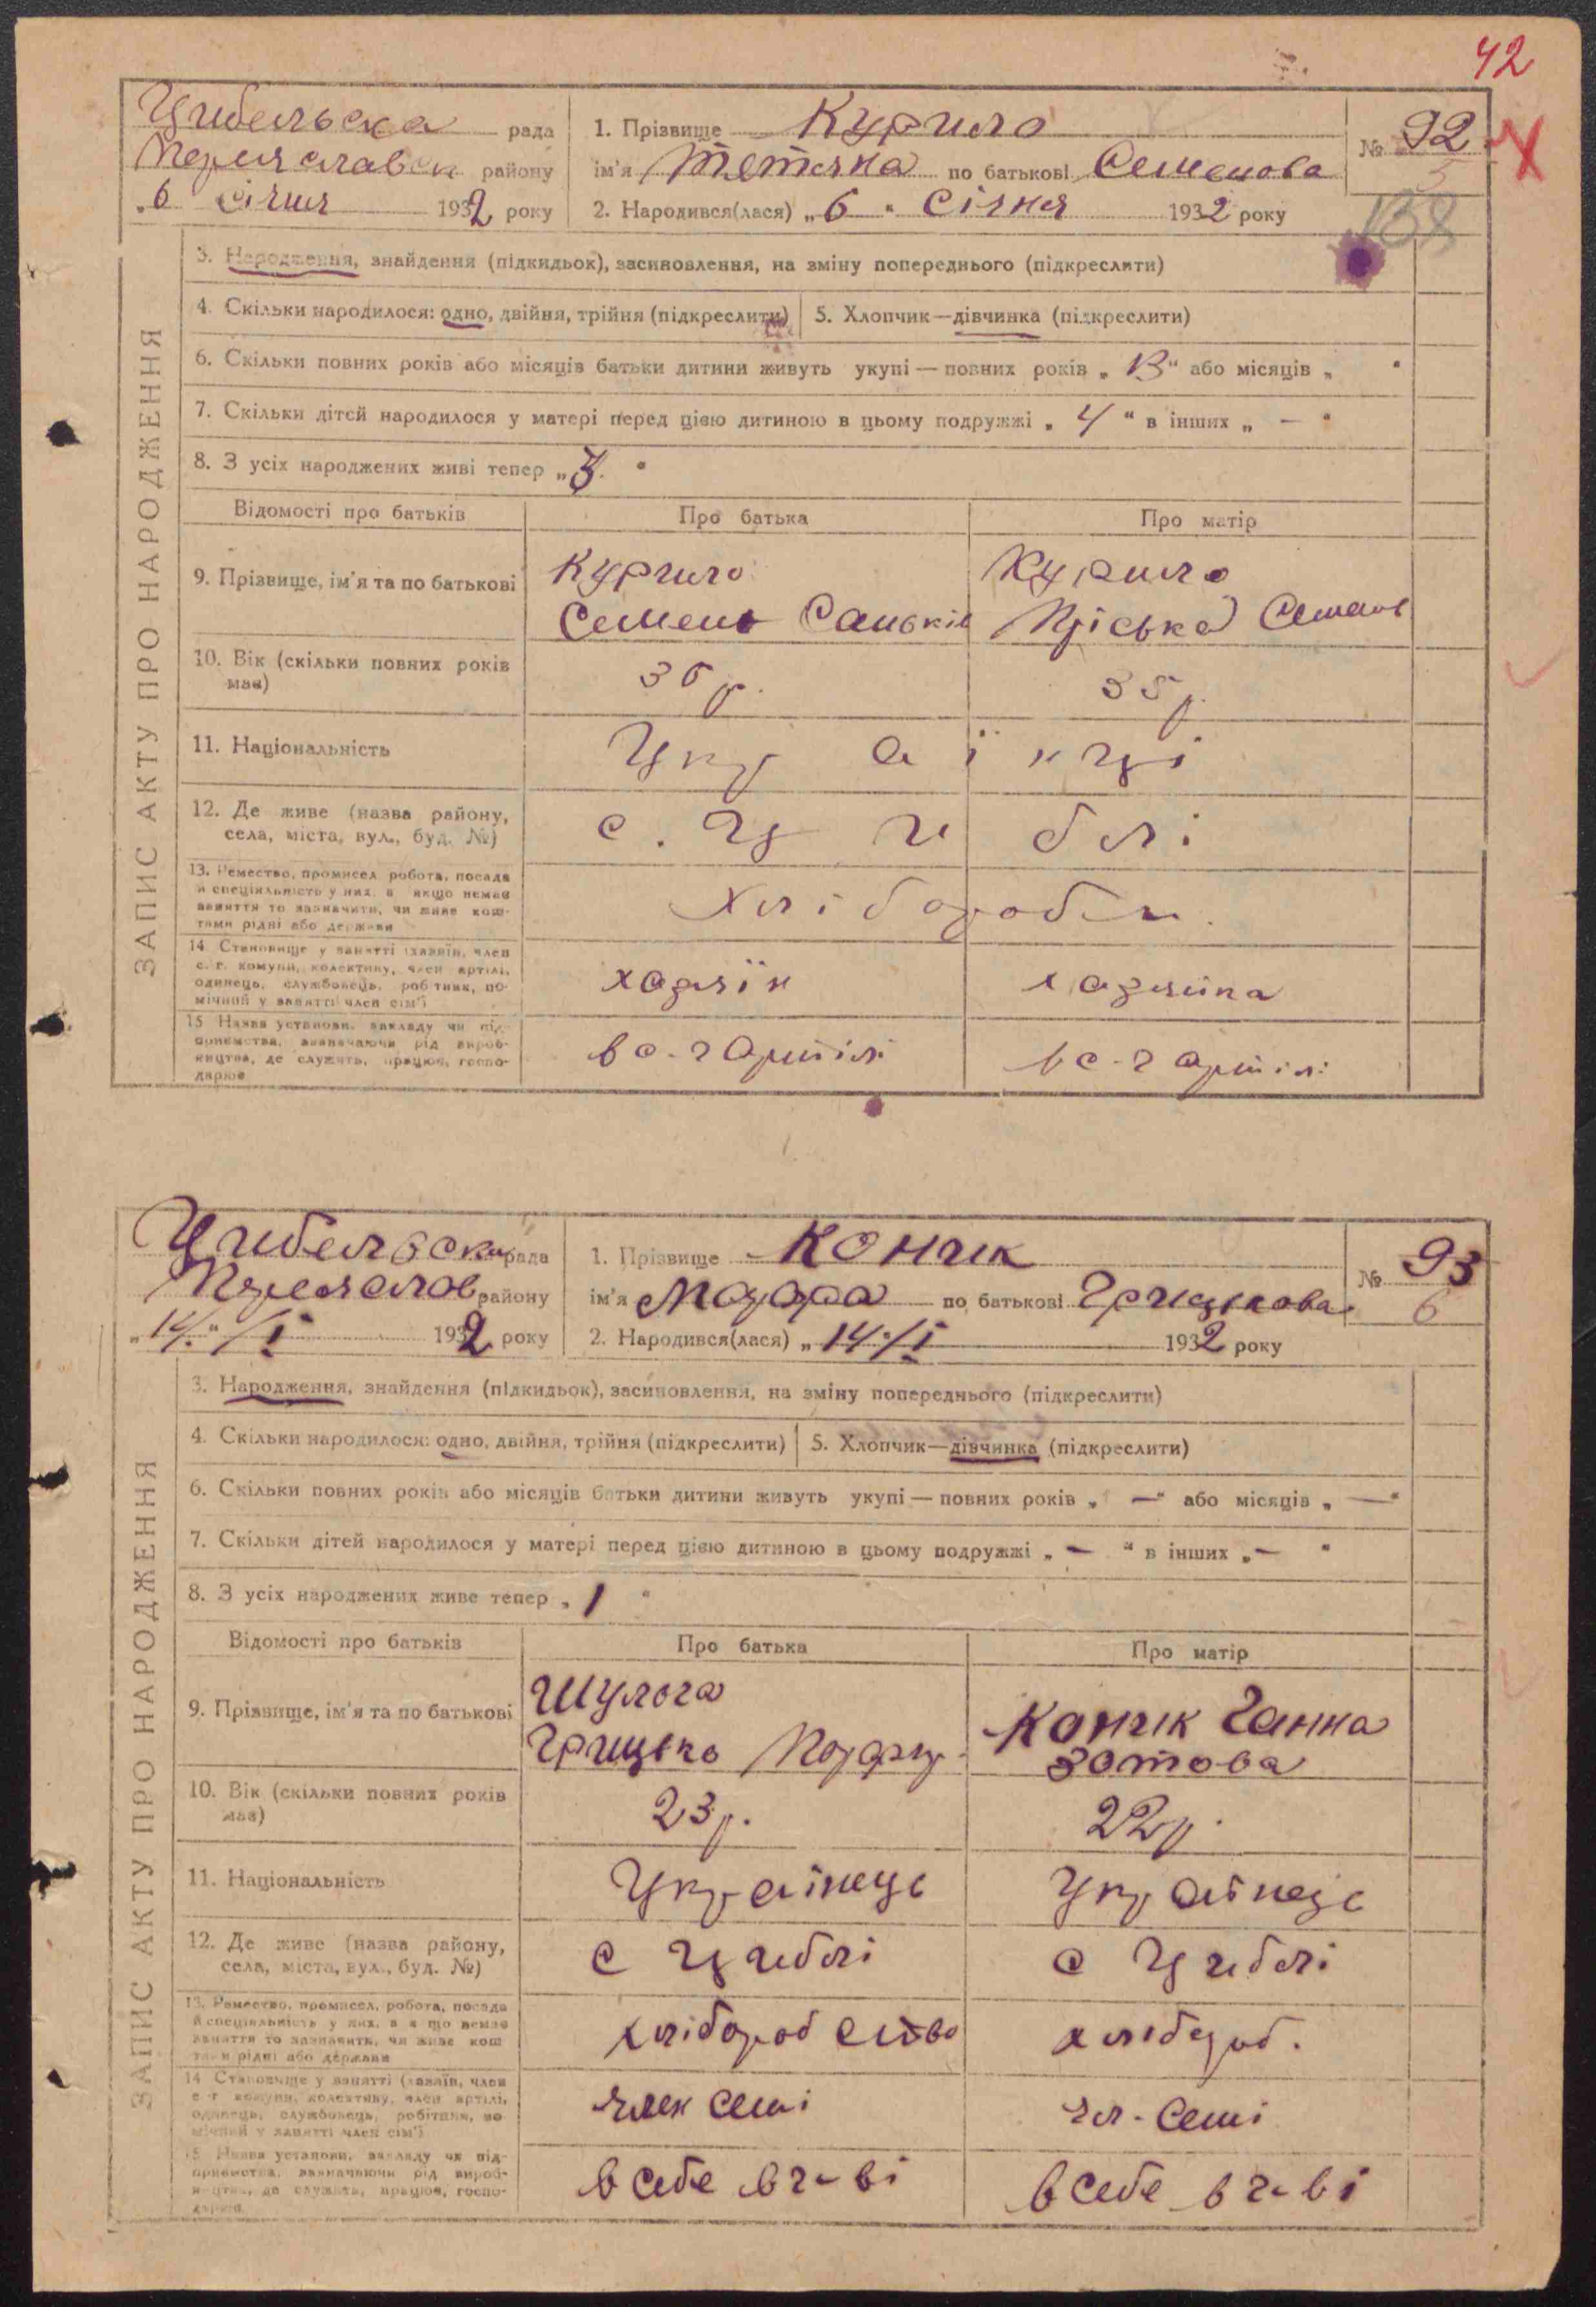 42
Цибельська рада
Переяславськ району
„6 січня 1932 року
1. Прізвище Курило
ім'я Тетяна по батькові Семенова
2. Народився(лася) „6 " Січня 1932 року
№ 92
5
138
ЗАПИС АКТУ ПРО НАРОДЖЕННЯ
3. Народження, знайдення (підкидьок), засиновлення, на зміну попереднього (підкреслити)
4. Скільки народилося: одно, двійня, трійня (підкреслити) 5. Хлопчик—дівчинка (підкреслити)
6. Скільки повних років або місяців батьки дитини живуть укупі — повних років „ 13 " або місяців „ "
7. Скільки дітей народилося у матері перед цією дитиною в цьому подружжі „ 4 " в інших „ — "
8. З усіх народжених живі тепер „ "
Відомості про батьків Про батька Про матір
9. Прізвище, ім'я та по батькові Курило Курило
Семень Саньків Пріська Семенов
10. Вік (скільки повних років 36 р. 35 р.
має)
11. Національність Украінці
12. Де живе (назва району, с. Циблі
села, міста, вул., буд. №)
13. Ремество, промисел робота, посада
й спеціяльність у них, а якщо немає
заняття то зазначити, чи живе кош-
тами рідні або держави
Хлібороби.
14. Становище у занятті (хазяїн, член
с. г. комуни, колективу, член артілі,
одинець, службовець, робітник, по-
мічний у занятті член сім'ї
хазяїн хазяйка
15 Назва установи, закладу чи під-
приємства, зазначаючи рід вироб-
ництва, де служить, працює, госпо-
дарює
в с-г артілі в с-г артілі
Цибельська рада
Переяслав району
„14." / I 1932 року
1. Прізвище Кончик
ім'я по батькові Грицькова
2. Народився(лася) „14/I 1932 року
№ 93
6
ЗАПИС АКТУ ПРО НАРОДЖЕННЯ
3. Народження, знайдення (підкидьок), засиновлення, на зміну попереднього (підкреслити)
4. Скільки народилося: одно, двійня, трійня (підкреслити) 5. Хлопчик—дівчинка (підкреслити)
6. Скільки повних років або місяців батьки дитини живуть укупі — повних років „ — " або місяців „ — "
7. Скільки дітей народилося у матері перед цією дитиною в цьому подружжі „ — " в інших „ — "
8. З усіх народжених живе тепер „ 1 "
Відомості про батьків Про батька Про матір
9. Прізвище, ім'я та по батькові Шульга Кончик Ганна
Грицько Зотова
10. Вік (скільки повних років 23 р. 22 р.
має)
11. Національність Украінець Украінець
12. Де живе (назва району, с Циблі с Циблі
села, міста, вул., буд. №)
13. Ремество, промисел, робота, посада
й спеціяльність у них, а якщо немає
заняття то зазначить, чи живе кош
тами рідні або держави
хліборобство хлібороб.
14 Становище у занятті (хазяїн, член
с г комуни, колективу, член артілі,
одинець, службовець, робітник, по
мічний у занятті член сім'ї
член семі чл-семі
15 Назва установи, закладу чи під-
приємства, зазначаючи рід вироб-
ництва, де служить, працює, госпо-
дарює
в себе в г-ві в себе в г-ві